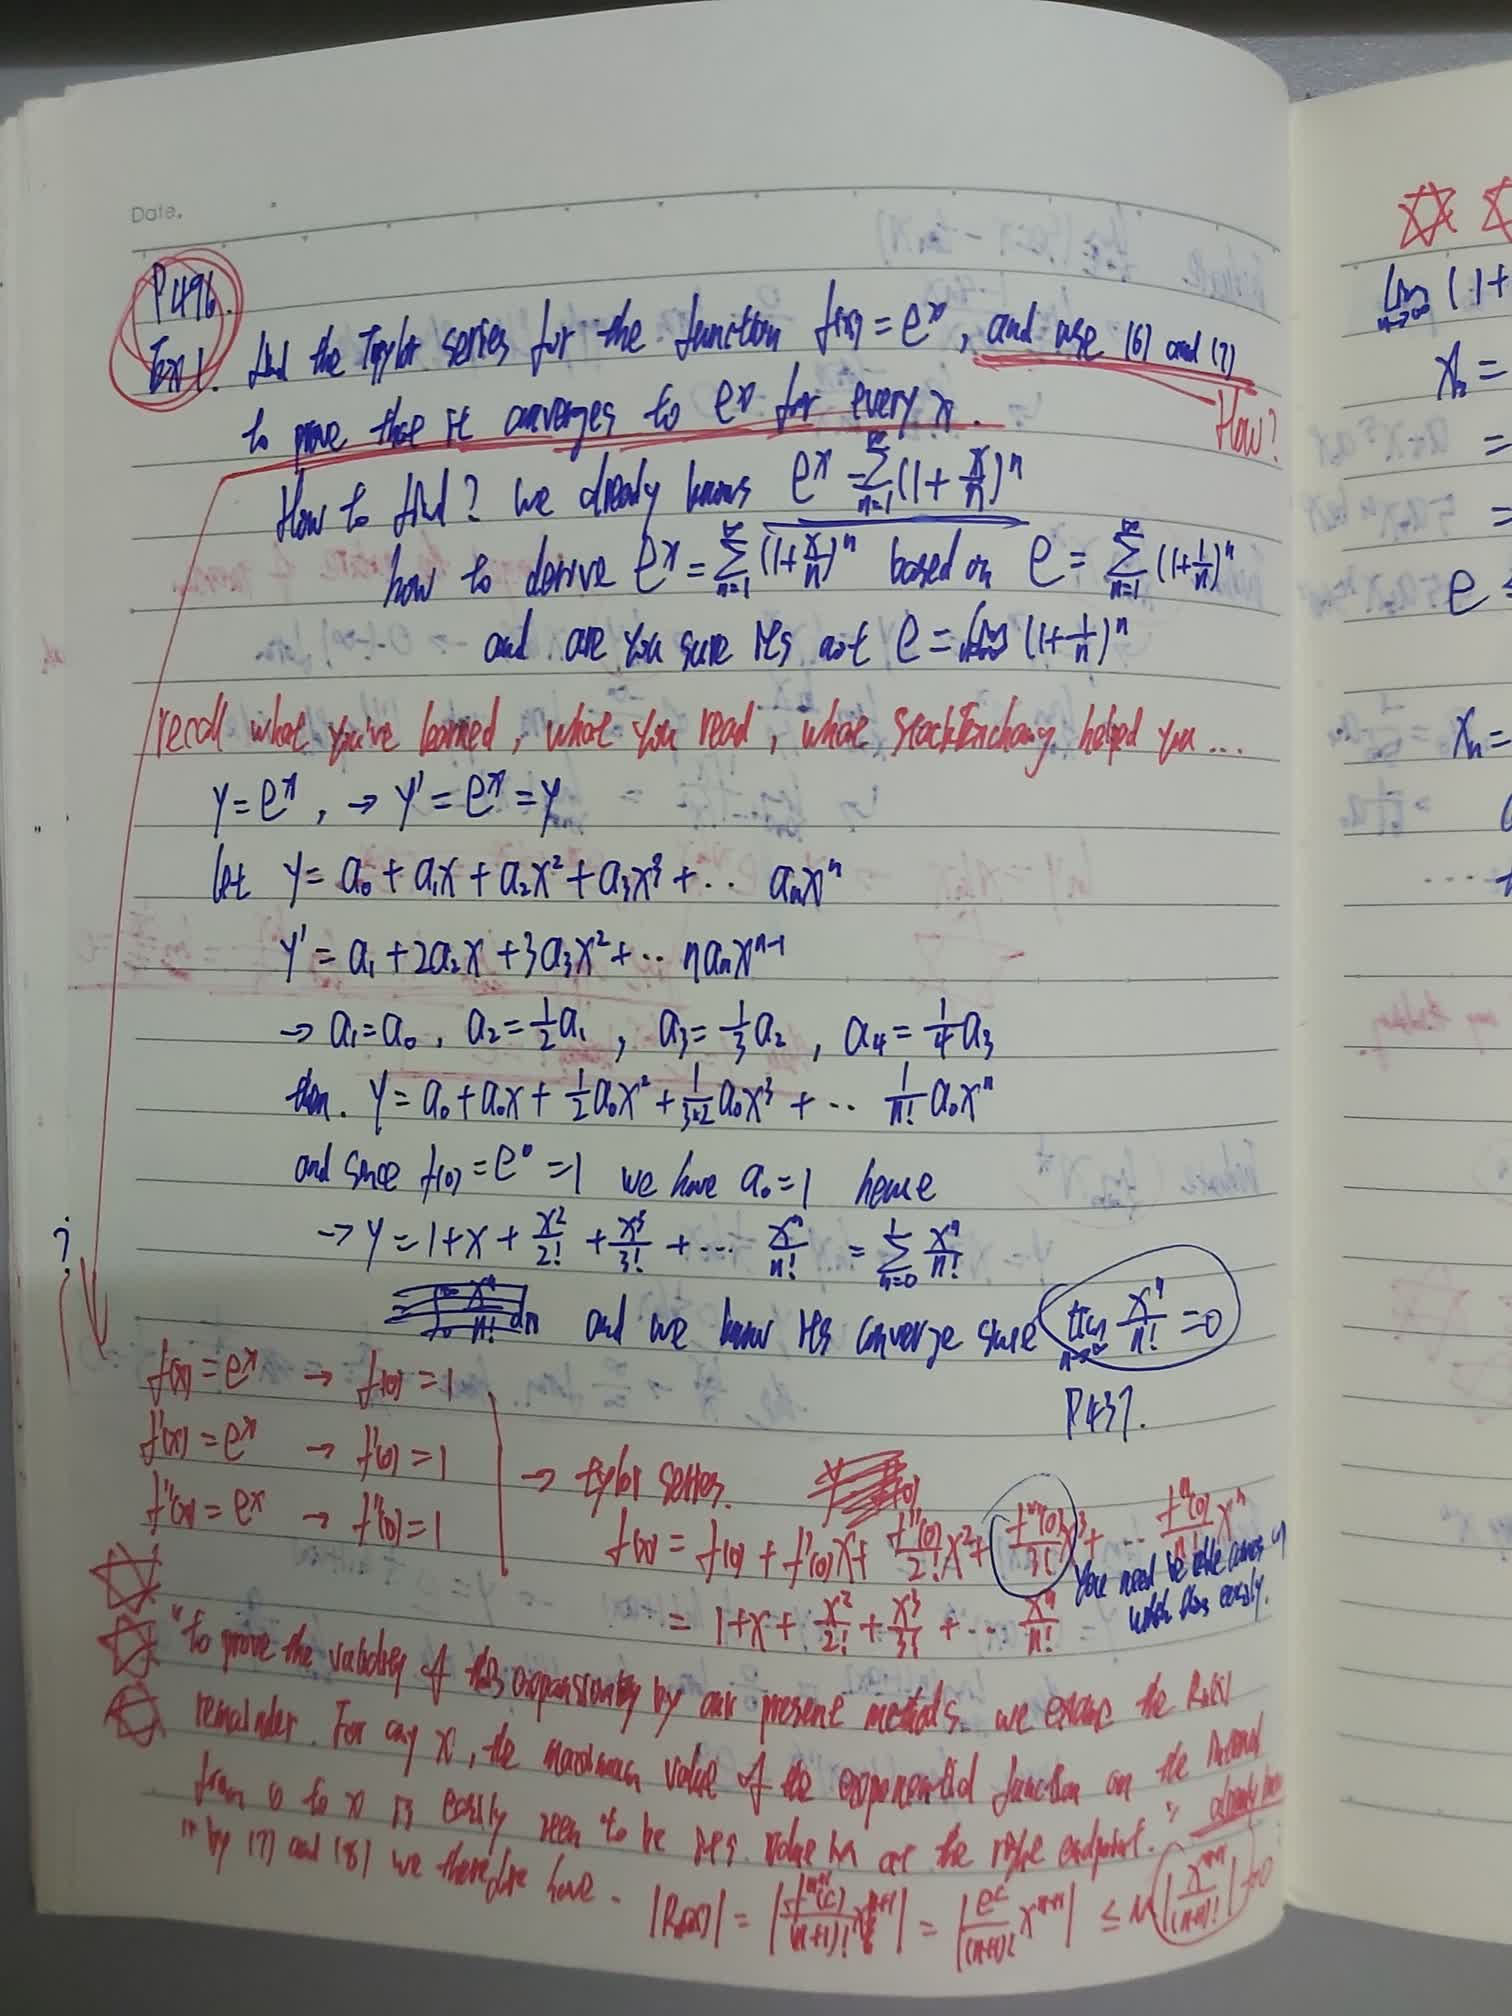 Date.
P496.
Ex 1. find the Taylor series for the function f(x) = e^x, and use (6) and (7)
to prove that it converges to e^x for every x.
How?
How to find? we already knows e^x = ∑_{n=1}^∞ (1 + x/n)^n
how to derive e^x = ∑_{n=1}^∞ (1+x/n)^n based on e = ∑_{n=1}^∞ (1+1/n)^n
and are you sure it's not e = lim_{n→∞} (1+1/n)^n
recall what you've learned, what you read, what StackExchange helped you ...
y = e^x, → y' = e^x = y
let y = a₀ + a₁x + a₂x² + a₃x³ + ·· aₙx^n
y' = a₁ + 2a₂x + 3a₃x² + ·· naₙx^{n-1}
→ a₁ = a₀, a₂ = 1/2 a₁, a₃ = 1/3 a₂, a₄ = 1/4 a₃
then. y = a₀ + a₀x + 1/2 a₀x² + 1/3·2 a₀x³ + ·· 1/n! a₀x^n
and since f(0) = e^0 = 1 we have a₀ = 1 hence
→ y = 1 + x + x²/2! + x³/3! + ··· x^n/n! = ∑_{n=0} x^n/n!
and we know it's converge since lim_{n→∞} x^n/n! = 0
P437.
?
f(x) = e^x → f(0) = 1
f'(x) = e^x → f'(0) = 1
f''(x) = e^x → f''(0) = 1
→ tylor series.
f(x) = f(0) + f'(0)x + f''(0)/2! x² + f'''(0)/3! x³ + ·· f^n(0)/n! x^n
You need be able
write this easily.
= 1 + x + x²/2! + x³/3! + ·· x^n/n!
"to prove the validity of this expansion by our present methods we examine the Rn(x)
remainder. For any x, the maximum value of the exponential function on the interval
from 0 to x is easily seen to be its value at the right endpoint."
already know
" by (7) and (8) we therefore have -
|Rn(x)| = |f^{n+1}(c)/(n+1)! x^{n+1}| = |e^c/(n+1)! x^{n+1}| ≤ M |x^{n+1}/(n+1)!| → 0
lim_{n→∞} (1+
xₙ =
=
=
e
xₙ =